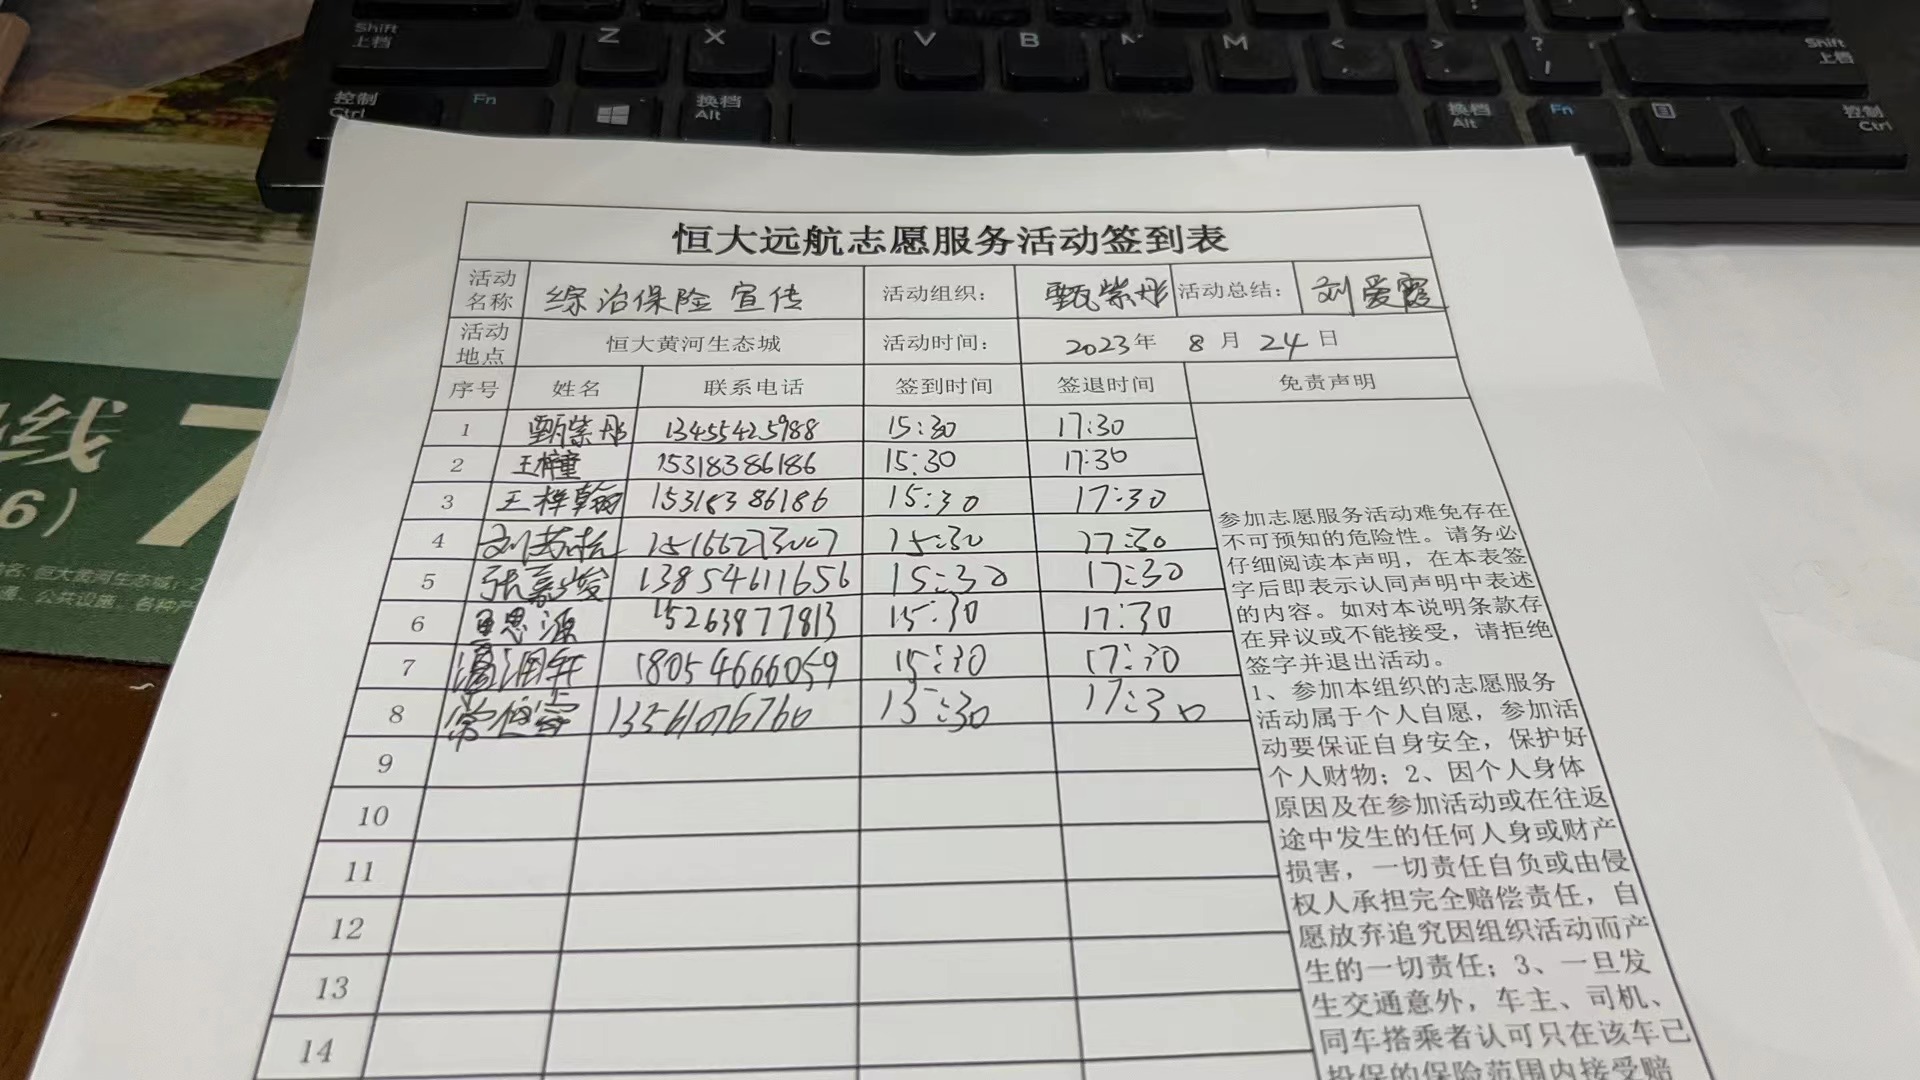 Shift
上档
Z X C V B N M < > ? /
Shift
上档
控制
Ctrl
Fn
换档
Alt
换档
Alt
Fn
控制
Ctrl
线
7
6)
恒大黄河生态城;
公共设施、各种产
恒大远航志愿服务活动签到表
活动名称 综治保险宣传 活动组织: 甄紫彤 活动总结: 刘爱霞
活动地点 恒大黄河生态城 活动时间: 2023年 8月 24日
序号 姓名 联系电话 签到时间 签退时间 免责声明
1 甄紫彤 13455425988 15:30 17:30
2 王橦 15318386186 15:30 17:30
3 王梓翰 15318386186 15:30 17:30
4 15166273007 15:30 17:30
5 张嘉峻 13854611656 15:30 17:30
6 15263877813 15:30 17:30
7 18054666059 15:30 17:30
8 13561076760 15:30 17:30
9
10
11
12
13
14
参加志愿服务活动难免存在
不可预知的危险性。请务必
仔细阅读本声明，在本表签
字后即表示认同声明中表述
的内容。如对本说明条款存
在异议或不能接受，请拒绝
签字并退出活动。
1、参加本组织的志愿服务
活动属于个人自愿，参加活
动要保证自身安全，保护好
个人财物；2、因个人身体
原因及在参加活动或在往返
途中发生的任何人身或财产
损害，一切责任自负或由侵
权人承担完全赔偿责任，自
愿放弃追究因组织活动而产
生的一切责任；3、一旦发
生交通意外，车主、司机、
同车搭乘者认可只在该车已
投保的保险范围内接受赔